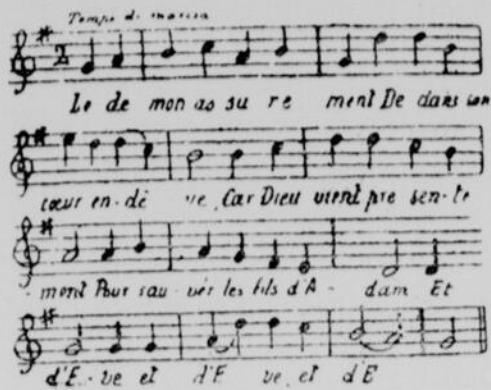 Tempo di marcia
2
Le de mon as su re ment De dans son
cœur en-dê ve, Car Dieu vient pre sen-te
-ment Pour sau-ver les fils d'A-dam Et
d'E-ve et d'E ve, et d'E